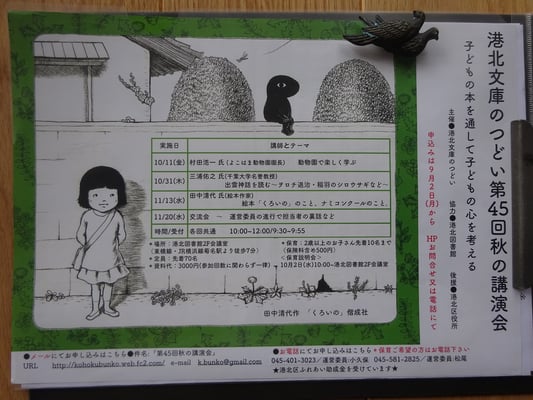 港北文庫のつどい第45回秋の講演会
子どもの本を通して子どもの心を考える
主催●港北文庫のつどい　協力●港北図書館　後援●港北区役所
申込みは9月2日(月)から　HPお問合せ又は電話にて
実施日　講師とテーマ
10/11(金)　村田浩一 氏(よこはま動物園園長)　動物園で楽しく学ぶ
10/31(木)　三浦佑之 氏(千葉大学名誉教授)
出雲神話を読む～ヲロチ退治・稲羽のシロウサギなど～
11/13(水)　田中清代 氏(絵本作家)
絵本「くろいの」のこと、ナミコンクールのこと、
11/20(水)　交流会　～　運営委員の進行で担当者の裏話など
時間/受付　各回共通　10:00-12:00/9:30-9:55
*場所：港北図書館2F会議室
(東横線・JR横浜線菊名駅より徒歩7分)
*定員：先着70名
*資料代：3000円(参加回数に関わらず一律)
*保育：2歳以上のお子さん先着10名まで
(保険料含め500円)
<保育説明会>
・10月2日(水)10:00-港北図書館2F会議室
田中清代作　「くろいの」　偕成社
●メールにてお申し込みはこちら●件名:「第45回秋の講演会」
URL　http://kohokubunko.web.fc2.com/　e-mail　k.bunko@gmail.com
●お電話にてお申し込みはこちら*保育ご希望の方はお電話下さい
045-401-3023/運営委員:小久保　045-581-2825/運営委員:松尾
★港北区ふれあい助成金を受けています★